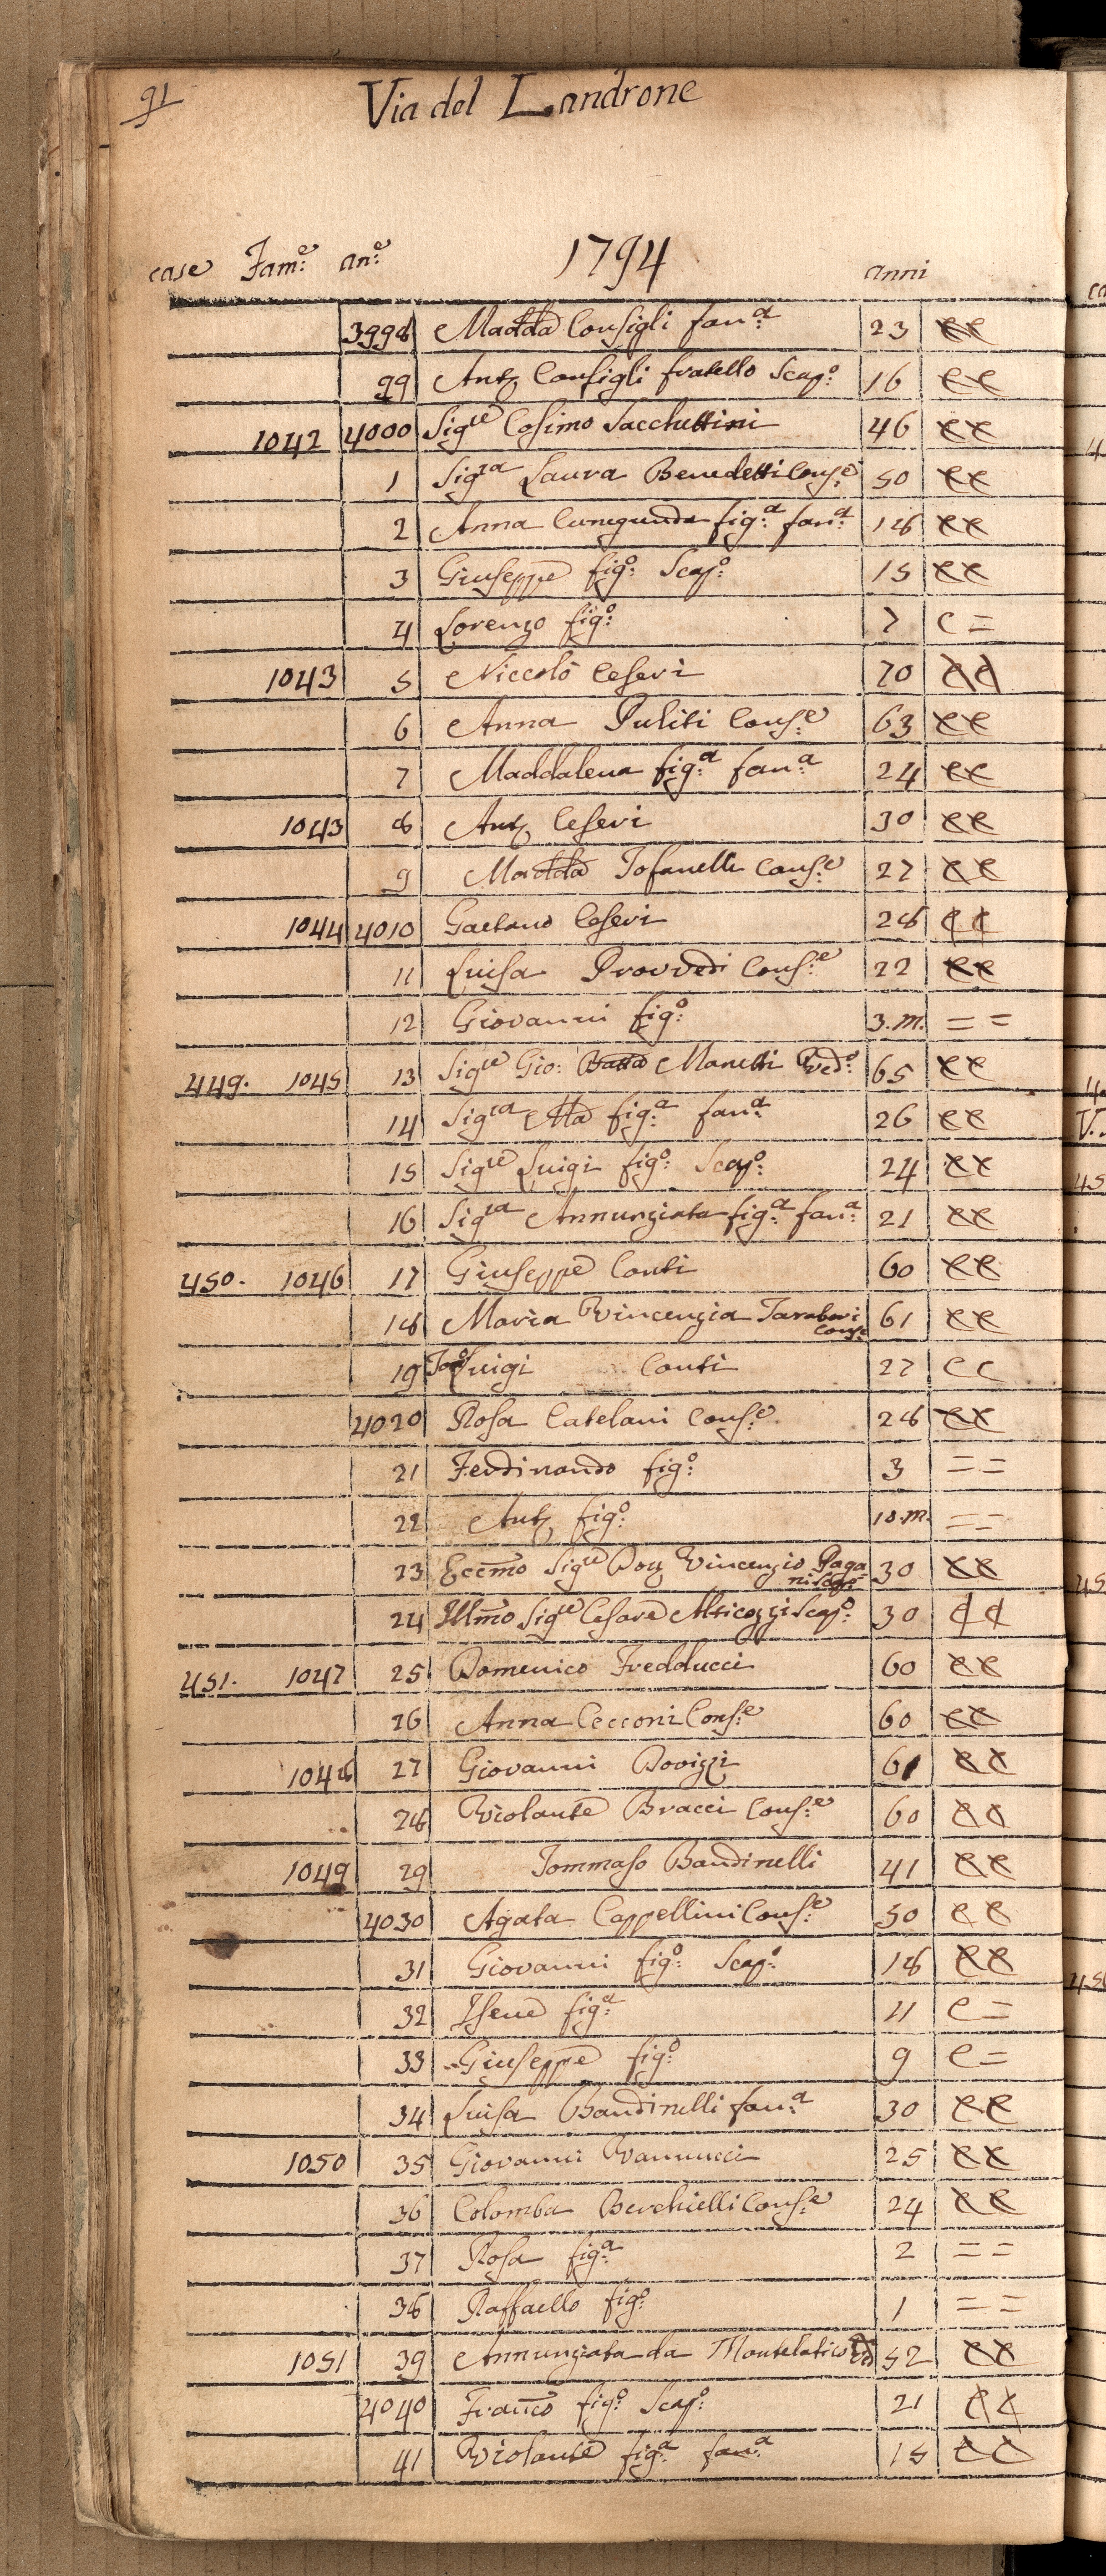 91
Via del Landrone
case Fam:e an:e 1794 anni
3998 Madda Consigli fan:a 23 ee
99 Ant. Consigli fratello Scap:o 16 ee
1042 4000 Sigre Cosimo Sacchettini 46 ee
1 Sigra Laura Benedetti Cons:e 50 ee
2 Anna Cunegunda fig:a fan:a 18 ee
3 Giuseppe fig:o Scap:o 15 ee
4 Lorenzo fig:o 7 c =
1043 5 Niccolò Ceseri 70
6 Anna Puliti Cons:e 63 ee
7 Maddalena fig:a fan:a 24 ee
1043 8 Ant. Ceseri 30 ee
9 Madda Tofanelli Cons:e 27 ee
1044 4010 Gaetano Ceseri 28
11 Luisa Provvedi Cons:e 22 ee
12 Giovanni fig:o 3.m. = =
449. 1045 13 Sigre Gio: Batta Manetti Ved:o 65 ee
14 Sigra Ma fig:a fan:a 26 ee
15 Sigre Luigi fig:o Scap:o 24 ee
16 Sigra Annunziata fig:a fan:a 21 ee
450. 1046 17 Giuseppe Conti 60 ee
18 Maria Vincenzia Tarabori 61 ee
Conse
19 Luigi Conti 27 e c
4020 Rosa Catelani Cons:e 28 ee
21 Ferdinando fig:o 3 = =
22 Ant. fig:o 10.m. = =
23 Eccmo Sigre Vincenzio Paga 30 ee
ni Scapo
24 Illmo Sigre Cesare Scap:o 30
451. 1047 25 Domenico Fredducci 60 ee
26 Anna Cecconi Cons:e 60 ee
1048 27 Giovanni Dovizzi 61 ee
28 Violante Bracci Cons:e 60 ee
1049 29 Tommaso Bandinelli 41 ee
4030 Agata Cappellini Cons:e 50 ee
31 Giovanni fig:o Scap:o 18 ee
32 Irene fig:a 11 e =
33 Giuseppe fig:o 9 e =
34 Luisa Bandinelli fan:a 30 ee
1050 35 Giovanni Vannucci 25 ee
36 Colomba Berchielli Cons:e 24 ee
37 Rosa fig:a 2 = =
38 Raffaello fig:o 1 = =
1051 39 Annunziata da Montelatico Va 52 ee
4040 Franco fig:o Scap:o 21
41 Violante fig:a fan:a 15 ee